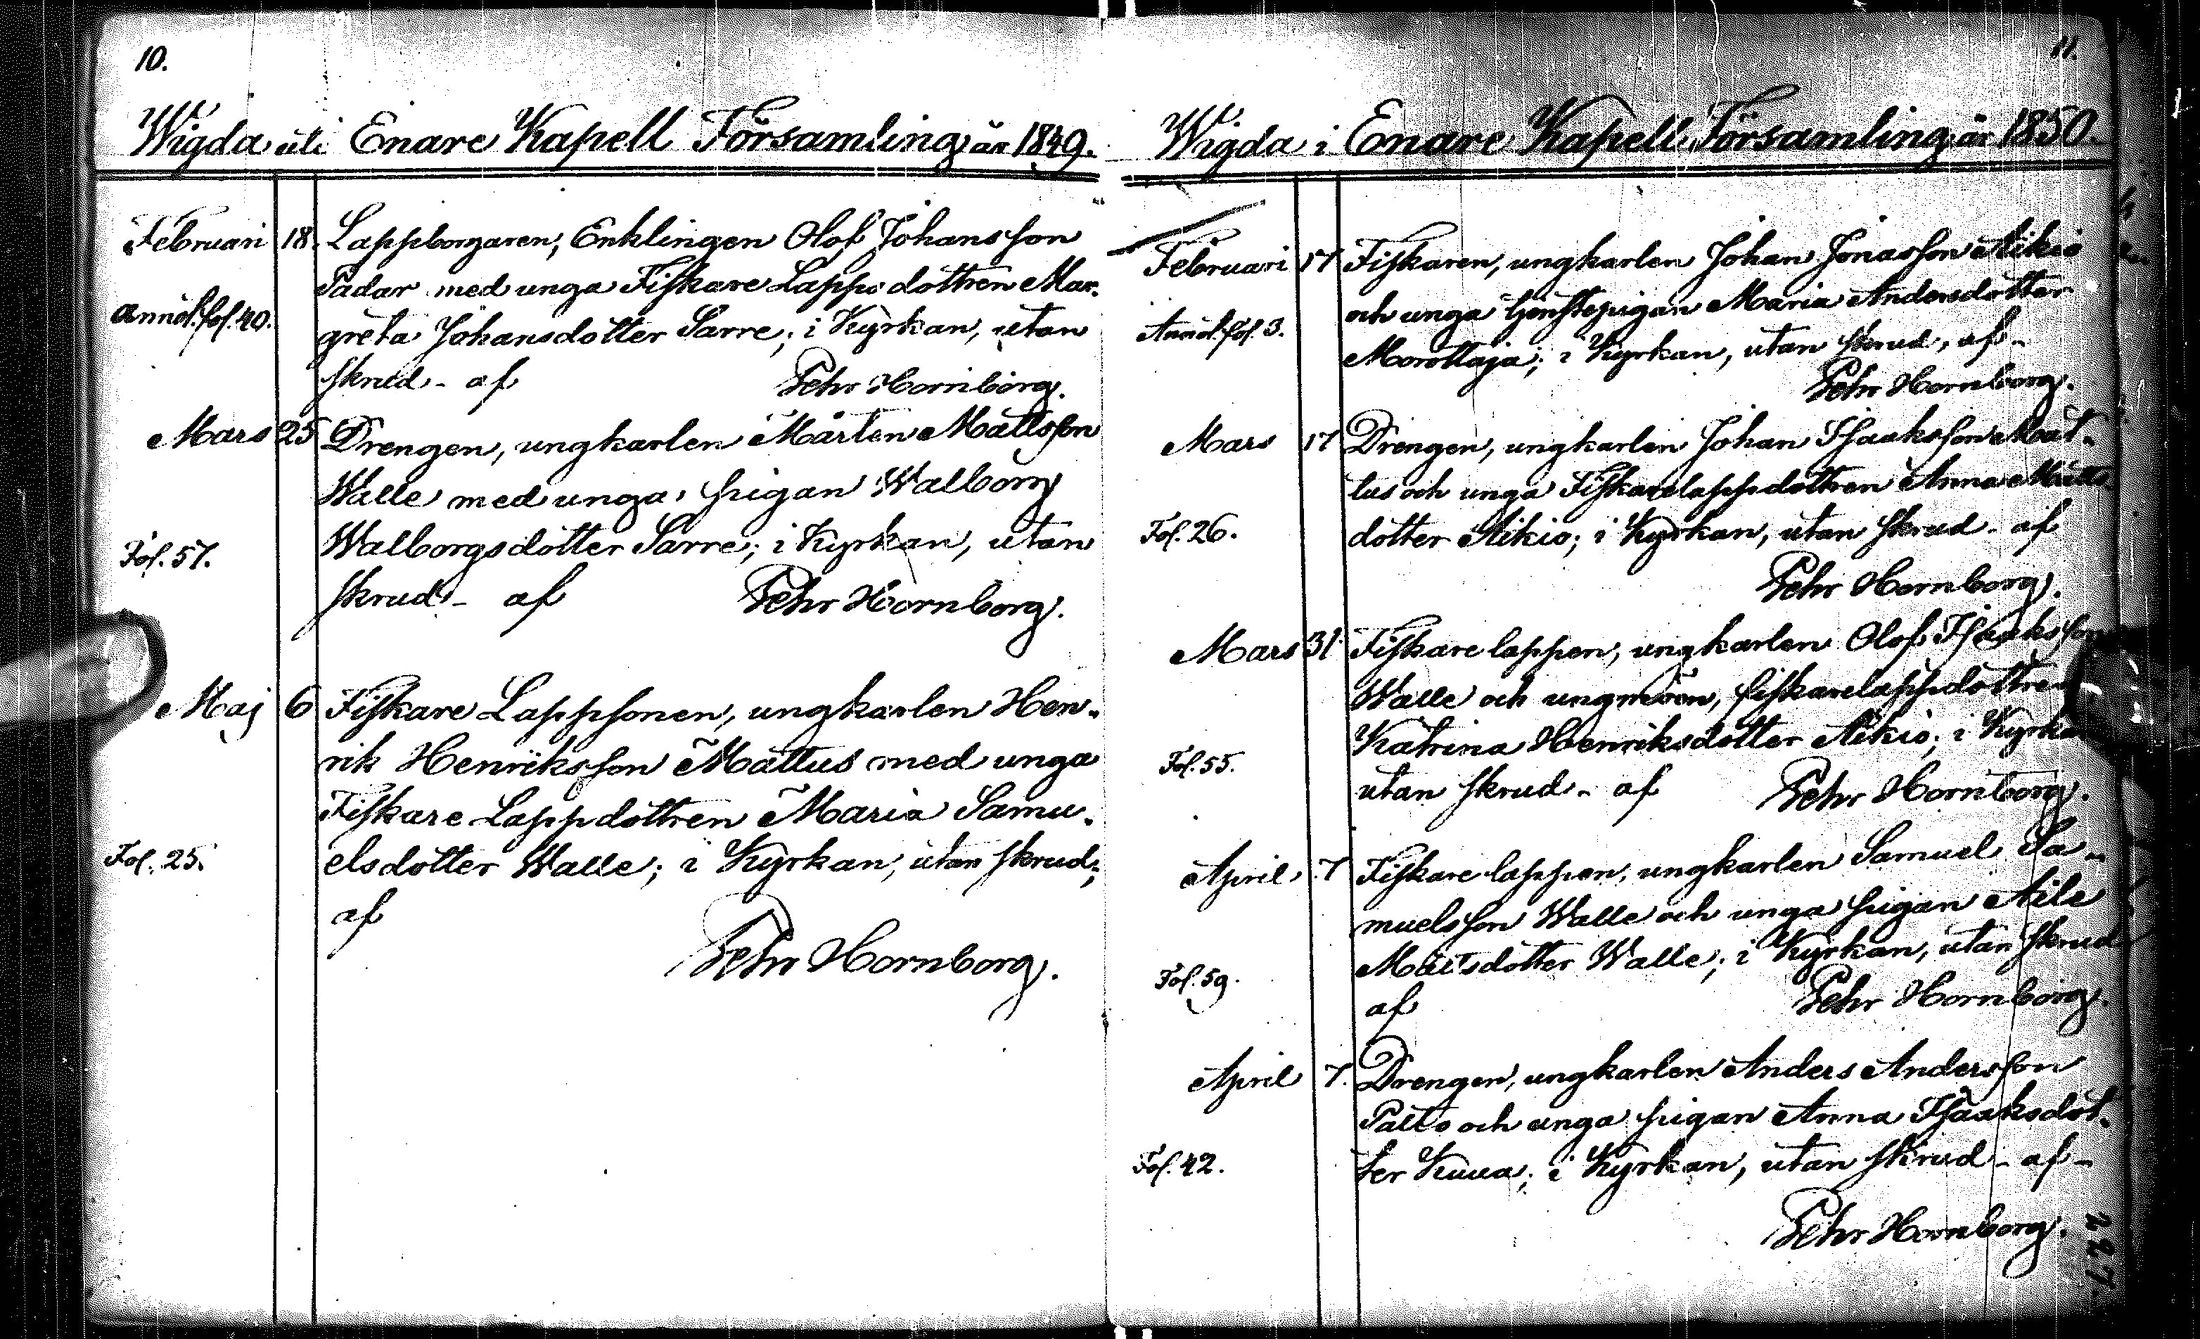 10.
Wigda uti Enare Kapell Församling år 1849.
Februari 18. Lappborgaren, Enklingen Olof Johansson
Padar med unga Fiskare Lapps dottren Mar-
Annot. fol. 40.
greta Johansdotter Sarre; i Kyrkan, utan
skrud - af Pehr Hornborg.
Mars 25 Drengen, ungkarlen Mårten Mattsson
Walle med unga pigan Walborg
Fol. 57.
Walborgsdotter Sarre; i Kyrkan, utan
skrud - af Pehr Hornborg.
Maj 6 Fiskare Lappsonen, ungkarlen Hen-
rik Henriksson Mattus med unga
Fiskare Lappdottren Maria Samu-
Fol. 25.
elsdotter Walle; i Kyrkan, utan skrud;
af
Pehr Hornborg.
11.
Wigda i Enare Kapell Församling år 1850.
Februari 17 Fiskaren, ungkarlen Johan Jonasson Aikio
och unga tjenstepigan Maria Andersdotter
Annot. fol. 3.
Morottaja; i Kyrkan, utan skrud, af -
Pehr Hornborg.
Mars 17 Drengen, ungkarlen Johan Isaaksson Mat-
tus och unga Fiskarelappsdottren Anna Matts
Fol. 26.
dotter Aikio; i Kyrkan, utan skrud - af
Pehr Hornborg.
Mars 31 Fiskare lappen, ungkarlen Olof Isaaksson
Walle och ungmön, fiskarelappdottren
Katrina Henriksdotter Aikio; i Kyrkan
Fol. 55.
utan skrud - af Pehr Hornborg.
April 7 Fiskare lappen, ungkarlen Samuel Sa-
muelsson Walle och unga pigan Aile
Mattsdotter Walle; i Kyrkan, utan skrud
Fol. 59.
af Pehr Hornborg.
April 7. Drengen, ungkarlen Anders Andersson
Palto och unga pigan Anna Isaaksdot-
Fol. 42.
ter Kuua; i Kyrkan, utan skrud - af -
Pehr Hornborg.
227